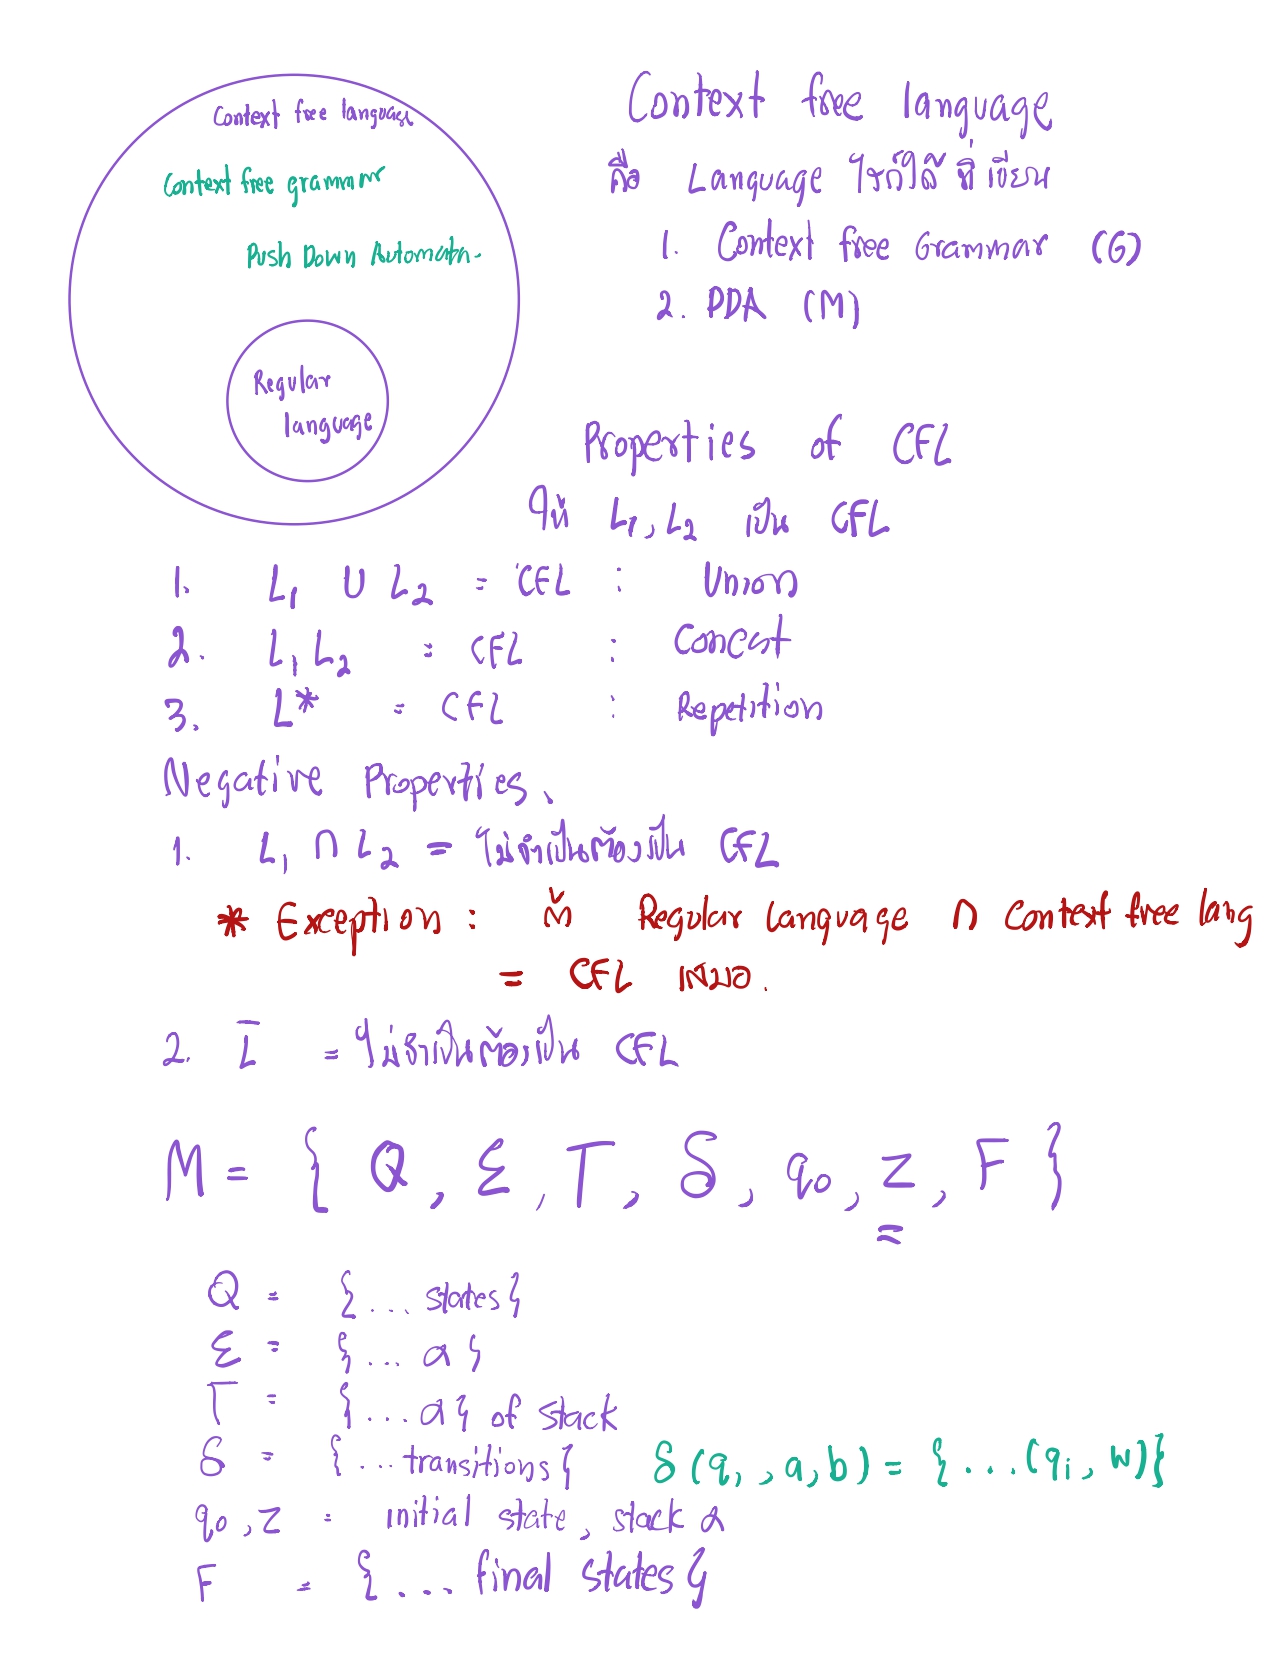 Context free language
Context free grammar
Push Down Automata.
Regular
language
Context free language
คือ Language ใดก็ได้ ที่ เขียน
1. Context free Grammar (G)
2. PDA (M)
Properties of CFL
ให้ L₁, L₂ เป็น CFL
1. L₁ ∪ L₂ = CFL : Union
2. L₁L₂ = CFL : Concat
3. L* = CFL : Repetition
Negative Properties.
1. L₁ ∩ L₂ = ไม่จำเป็นต้องเป็น CFL
* Exception : Regular language ∩ Context free lang
= CFL เสมอ.
2. L̅ = ไม่จำเป็นต้องเป็น CFL
M = { Q, Σ, T, δ, q₀, z, F }
=
Q = {... states}
Σ = {... a}
T = {... a} of stack
δ = {... transitions} δ(q, , a, b) = {...(qᵢ, w)}
q₀, z = initial state, stack a
F = {... final states}